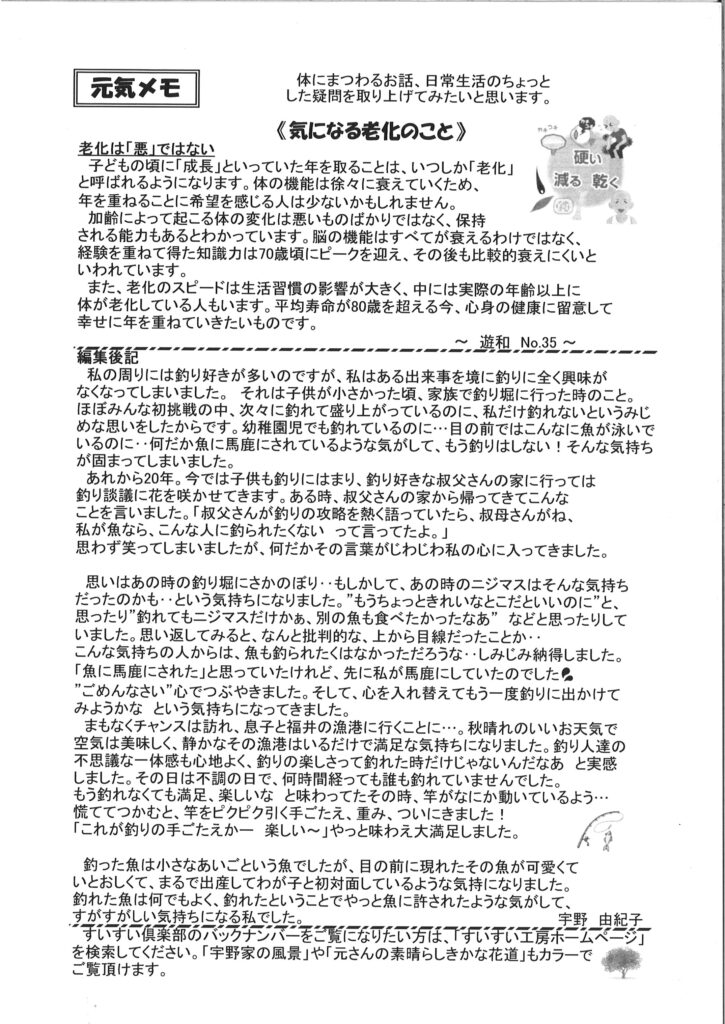 元気メモ
体にまつわるお話、日常生活のちょっと
した疑問を取り上げてみたいと思います。
《気になる老化のこと》
老化は「悪」ではない
子どもの頃に「成長」といっていた年を取ることは、いつしか「老化」
と呼ばれるようになります。体の機能は徐々に衰えていくため、
年を重ねることに希望を感じる人は少ないかもしれません。
加齢によって起こる体の変化は悪いものばかりではなく、保持
される能力もあるとわかっています。脳の機能はすべてが衰えるわけではなく、
経験を重ねて得た知識力は70歳頃にピークを迎え、その後も比較的衰えにくいと
いわれています。
また、老化のスピードは生活習慣の影響が大きく、中には実際の年齢以上に
体が老化している人もいます。平均寿命が80歳を超える今、心身の健康に留意して
幸せに年を重ねていきたいものです。
硬い
減る 乾く
～ 遊和 No.35 ～
編集後記
私の周りには釣り好きが多いのですが、私はある出来事を境に釣りに全く興味が
なくなってしまいました。 それは子供が小さかった頃、家族で釣り堀に行った時のこと。
ほぼみんな初挑戦の中、次々に釣れて盛り上がっているのに、私だけ釣れないというみじ
めな思いをしたからです。幼稚園児でも釣れているのに…目の前ではこんなに魚が泳いで
いるのに‥何だか魚に馬鹿にされているような気がして、もう釣りはしない！そんな気持ち
が固まってしまいました。
あれから20年。今では子供も釣りにはまり、釣り好きな叔父さんの家に行っては
釣り談議に花を咲かせてきます。ある時、叔父さんの家から帰ってきてこんな
ことを言いました。「叔父さんが釣りの攻略を熱く語っていたら、叔母さんがね、
私が魚なら、こんな人に釣られたくない って言ってたよ。」
思わず笑ってしまいましたが、何だかその言葉がじわじわ私の心に入ってきました。
思いはあの時の釣り堀にさかのぼり‥もしかして、あの時のニジマスはそんな気持ち
だったのかも‥という気持ちになりました。”もうちょっときれいなとこだといいのに”と、
思ったり”釣れてもニジマスだけかぁ、別の魚も食べたかったなあ” などと思ったりして
いました。思い返してみると、なんと批判的な、上から目線だったことか‥
こんな気持ちの人からは、魚も釣られたくはなかっただろうな‥しみじみ納得しました。
「魚に馬鹿にされた」と思っていたけれど、先に私が馬鹿にしていたのでした
”ごめんなさい”心でつぶやきました。そして、心を入れ替えてもう一度釣りに出かけて
みようかな という気持ちになってきました。
まもなくチャンスは訪れ、息子と福井の漁港に行くことに…。秋晴れのいいお天気で
空気は美味しく、静かなその漁港はいるだけで満足な気持ちになりました。釣り人達の
不思議な一体感も心地よく、釣りの楽しさって釣れた時だけじゃないんだなあ と実感
しました。その日は不調の日で、何時間経っても誰も釣れていませんでした。
もう釣れなくても満足、楽しいな と味わってたその時、竿がなにか動いているよう…
慌ててつかむと、竿をピクピク引く手ごたえ、重み、ついにきました！
「これが釣りの手ごたえかー 楽しい～」やっと味わえ大満足しました。
釣った魚は小さなあいごという魚でしたが、目の前に現れたその魚が可愛くて
いとおしくて、まるで出産してわが子と初対面しているような気持になりました。
釣れた魚は何でもよく、釣れたということでやっと魚に許されたような気がして、
すがすがしい気持ちになる私でした。
宇野 由紀子
すいすい倶楽部のバックナンバーをご覧になりたい方は、「すいすい工房ホームページ」
を検索してください。「宇野家の風景」や「元さんの素晴らしきかな花道」もカラーで
ご覧頂けます。